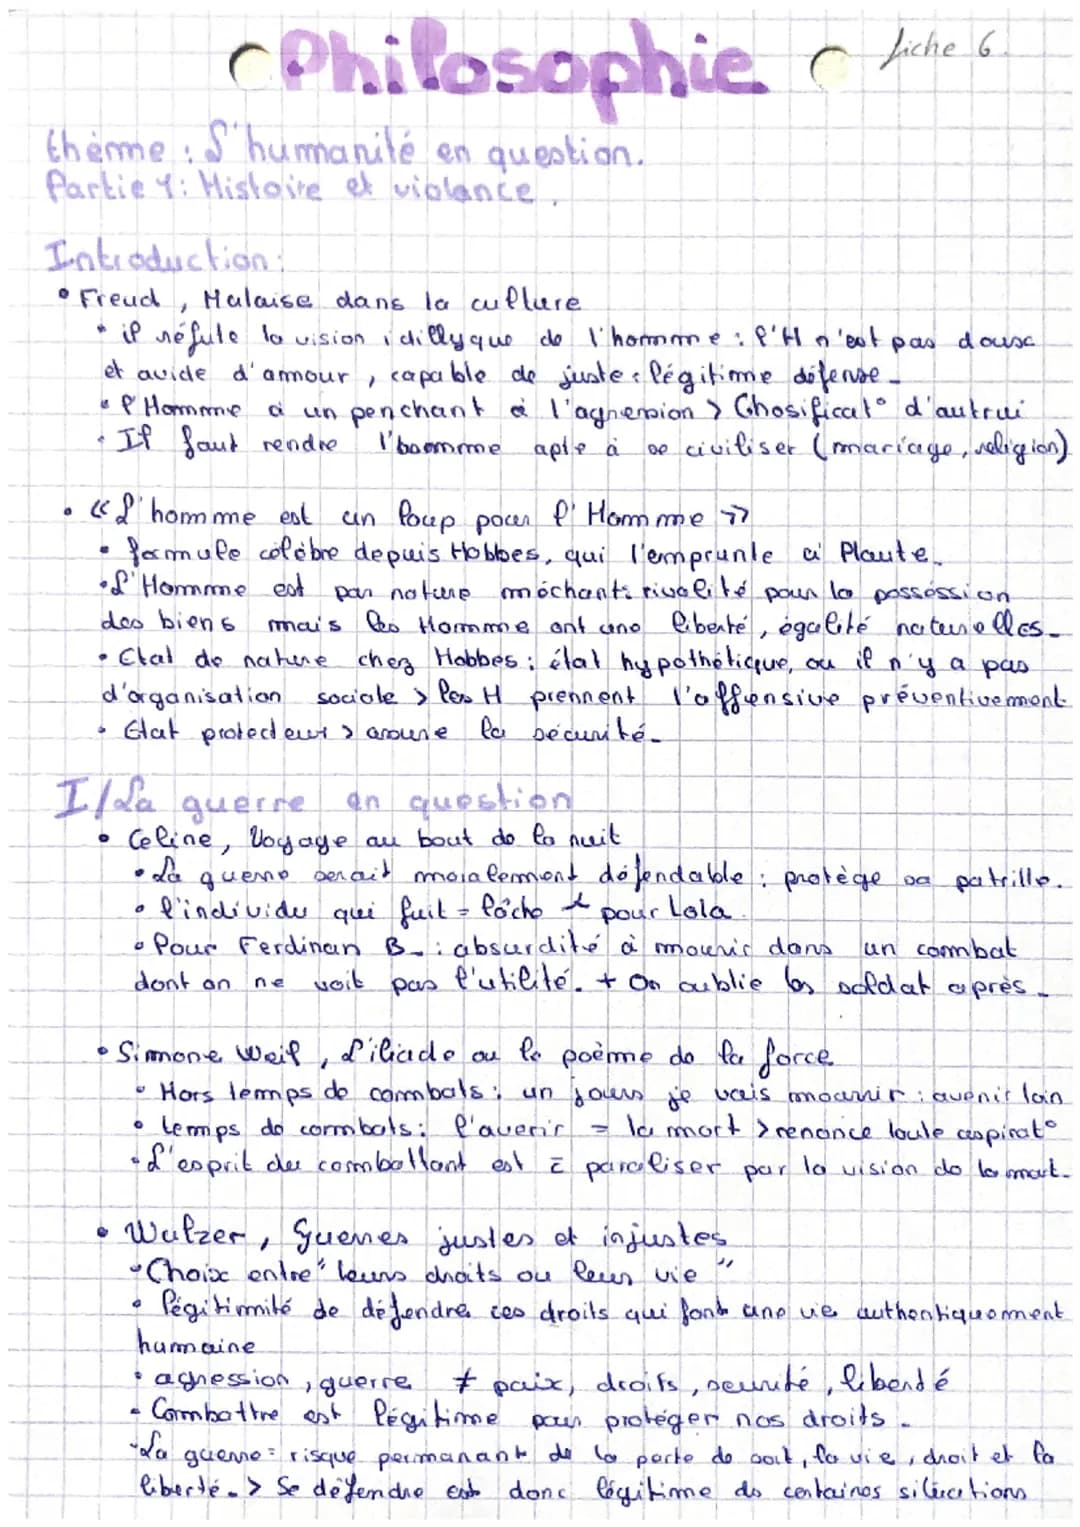 Philosophie
fiche 6.
thème : L'humanité en question.
Partie 1 : Histoire et violance.
Introduction :
• Freud, Malaise dans la culture
• il réfute la vision idillyque de l'homme : l'H n'est pas doux
et avide d'amour, capable de juste légitime défense.
• l'Homme a un penchant à l'agression > Chosificat° d'autrui
• Il faut rendre l'homme apte à se civiliser (mariage, religion)
• « L'homme est un loup pour l'Homme »
• formule célèbre depuis Hobbes, qui l'emprunte à Plaute.
• L'Homme est par nature méchant : rivalité pour la posséssion
des biens mais les Homme ont une liberté, égalité naturelles.
• Etat de nature chez Hobbes : état hypothétique, ou il n'y a pas
d'organisation sociale > les H prennent l'offensive préventivement
• Etat protecteur > assure la sécurité.
I/ La guerre en question
• Celine, Voyage au bout de la nuit
• La guerre serait moralement défendable : protège sa patrille.
• l'individu qui fuit = lâche pour Lola.
• Pour Ferdinan B. : absurdité à mourir dans un combat
dont on ne voit pas l'utilité. + On oublie les soldat après.
• Simone Weil, L'iliade ou le poème de la force
• Hors temps de combats : un jours je vais mourir : avenir loin
• temps de combats : l'avenir = la mort > renonce toute aspirat°
• L'esprit du combattant est = paraliser par la vision de la mort.
• Walzer, Guerres justes et injustes
• Choix entre "leurs droits ou leur vie"
• légitimité de défendre ces droits qui font une vie authentiquement
humaine
• agression, guerre ≠ paix, droits, sécurité, liberté
• Combattre est légitime pour protéger nos droits.
• La guerre = risque permanant de la perte de soit, la vie, droit et la
liberté. > Se défendre est donc légitime ds certaines situations